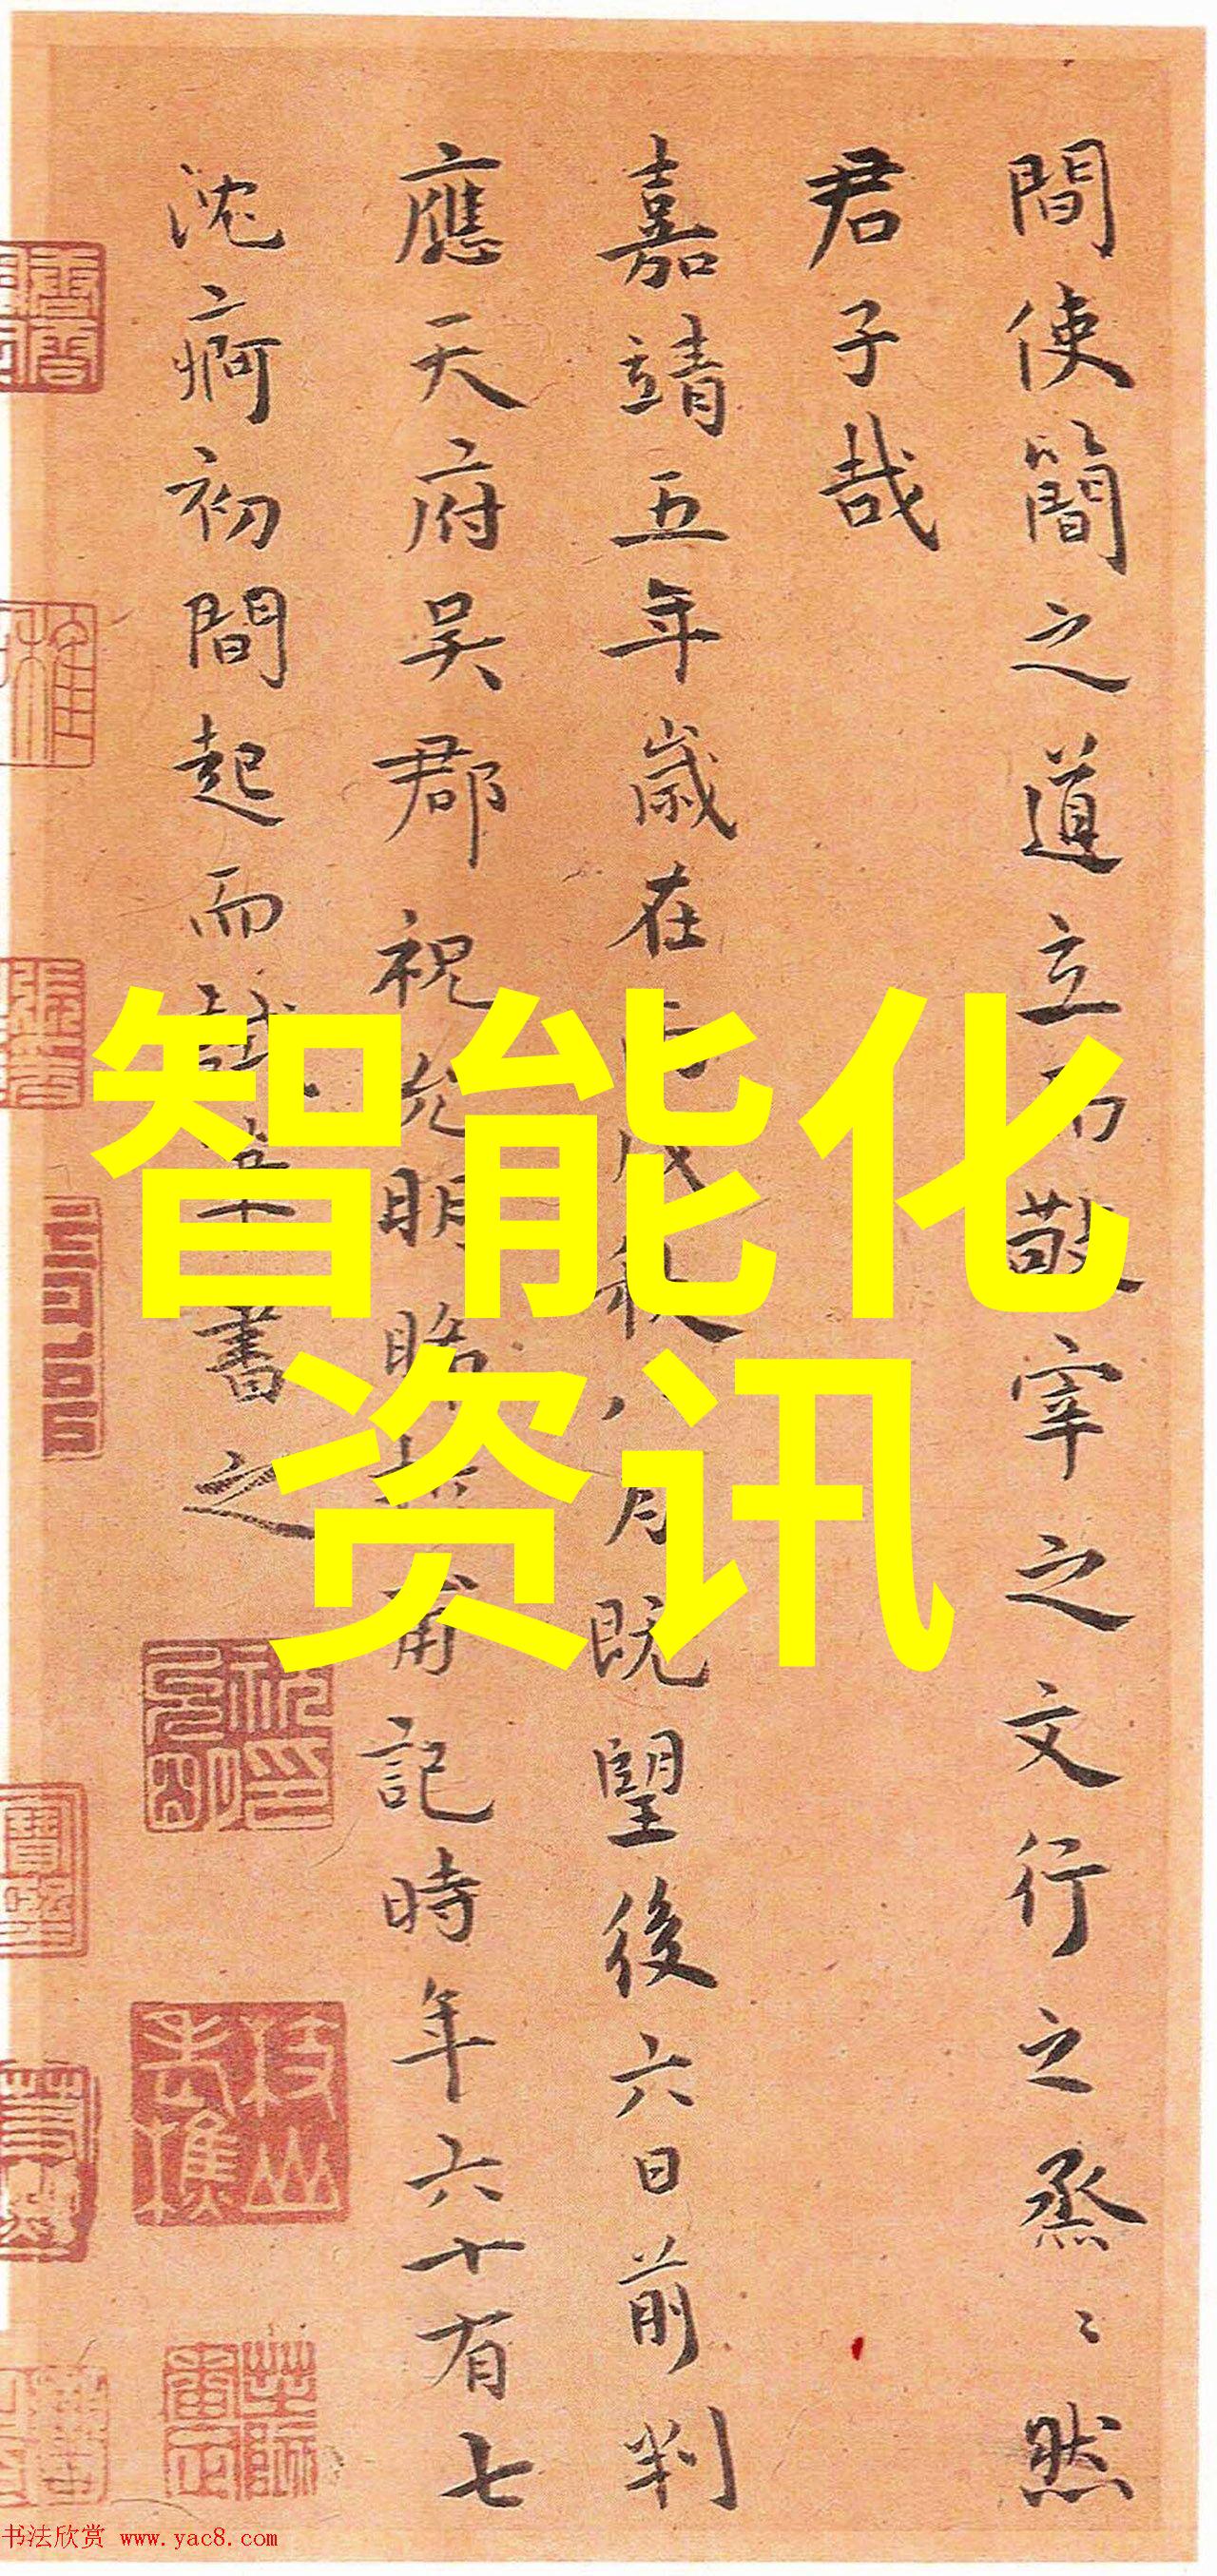 間使簡之道立而敬宰之文行之烝〻然
君子哉
嘉靖五年歲在丙戌秋八月既望後六日前判
應天府吳郡祝允明晞哲甫記時年六十有七
沈痾初間起而試筆書之
智能化
资讯
书法欣赏 www.yac8.com